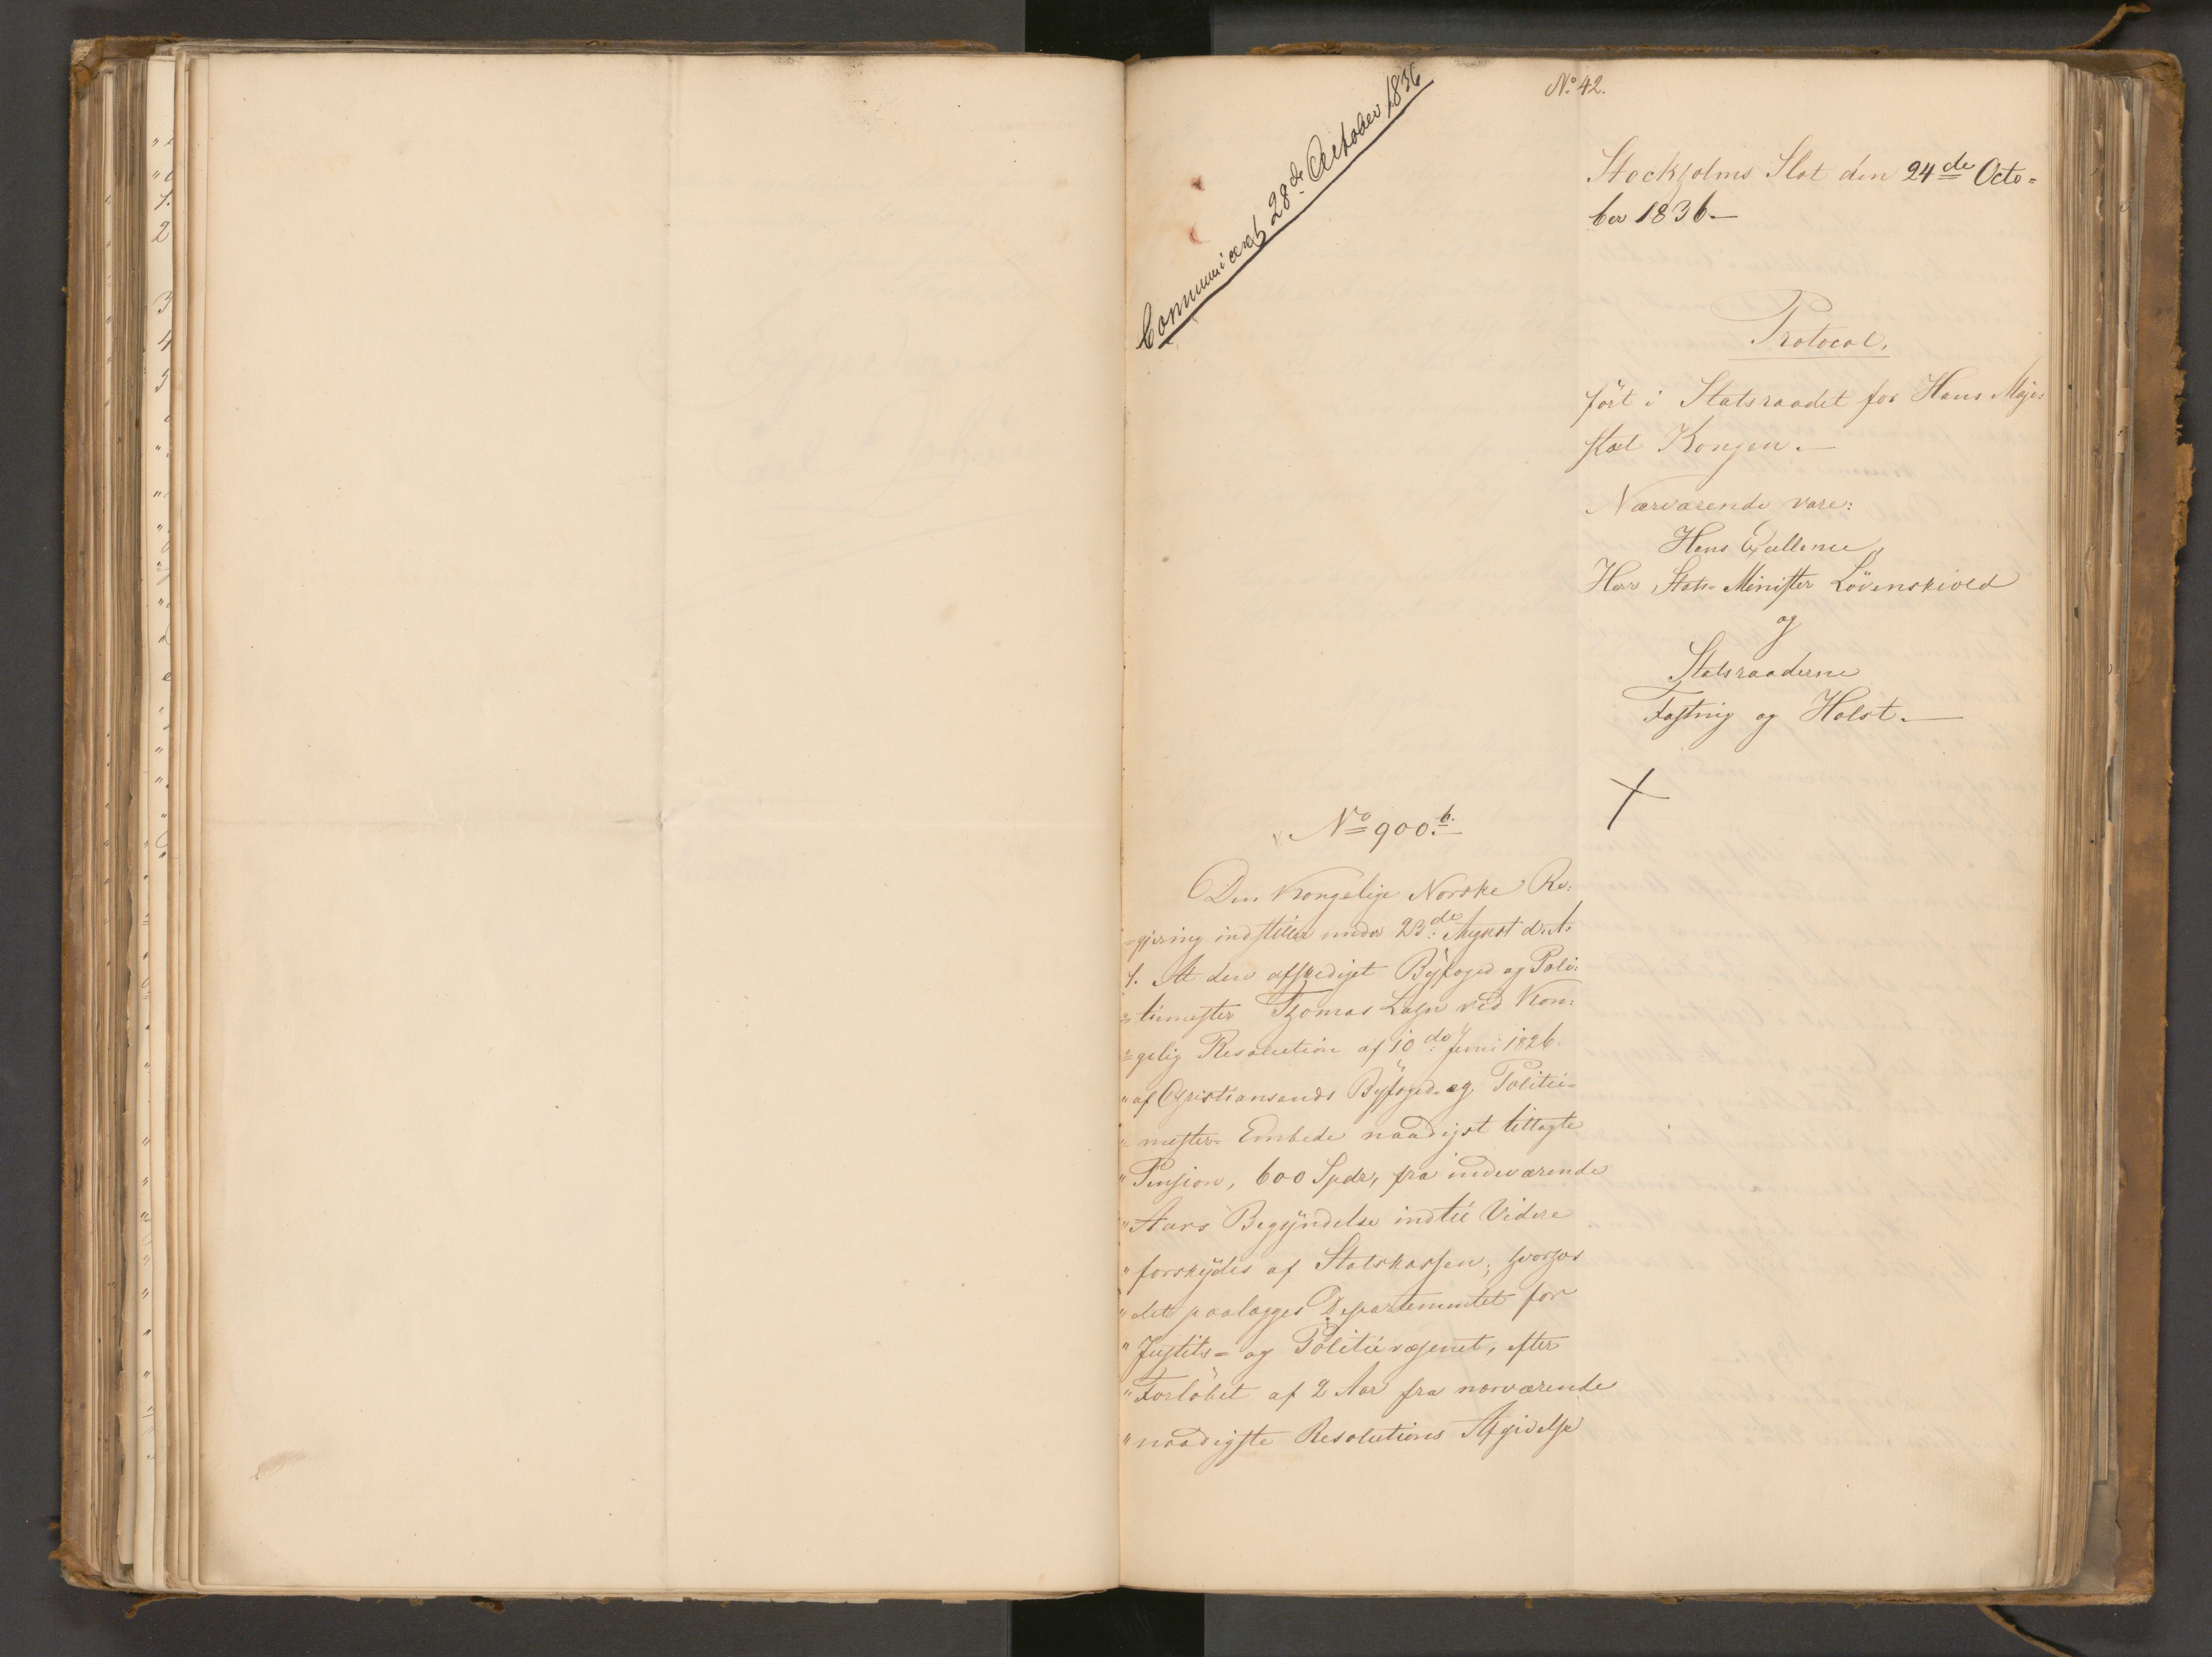 Communiceret 28de October 1836
No 42.
Stockholms Slot den 24de Octo-
ber 1836.—
Protocol,
ført i Statsraadet for Hans Maje-
stæt Kongen.—
Nærværende vare:
Hans Excellence,
Herr Stats-Minister Løvenskiold
og
Statsraaderne
Fasting og Holst.—
No 900.b.
Den Kongelige Norske Re-
-gjering indstiller under 23de August d. A.
1. At den afskediget Byfoged og Poli-
-tiemester Thomas Lasen ved Kon-
-gelig Resolution af 10de Juni 1826
"af Christiansands Byfoged- og Politie-
"mester-Embede naadigst tillagte
"Pension, 600 Spdr, fra indeværende
"Aars Begyndelse indtil Videre
"forskydes af Statskassen, hvorhos
"det paalægges Departementet for
"Justits- og Politievæsenet, efter
"Forløbet af 2 Aar fra nærværende
"naadigste Resolutions Afgivelse